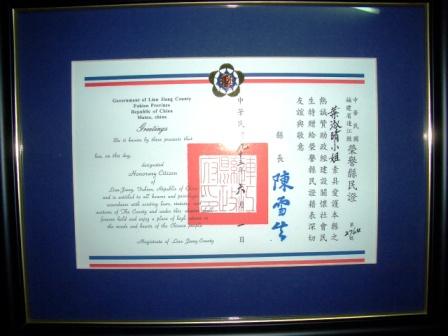 Government of Lien Jiang County
Fukien Province
Republic of China
Matsu, china
Greetings
Be it known by these presents that
has, on this day,
designated
Honorary Citizen
of
Lien Jiang, Fukien, Republic of China
and is entitled to all honors and privileges
accordance with existing laws,
of The County and under this
forever hold and enjoy a place of high
in the minds and hearts of the Chinese people
Magistrate of Lien Jiang County
中華民國
福建省連江縣
榮譽縣民證
葉淑晴小姐素具愛護本縣之
熱誠贊助政經建設關懷社會民
生特贈給榮譽縣民證藉表深切
友誼與敬意
縣長
陳雪生
中華民
年六月
日